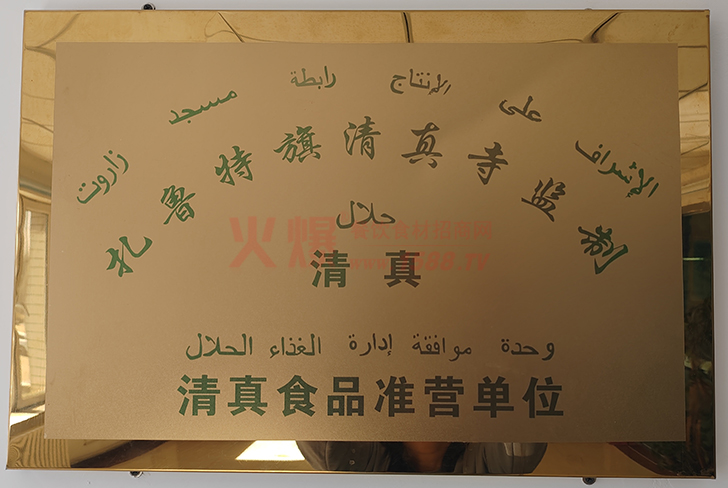 الإشراف على الإنتاج رابطة مسجد زاروت
扎鲁特旗清真寺监制
حلال
火爆 餐饮食材招商网
清真
وحدة موافقة إدارة الغذاء الحلال
清真食品准营单位